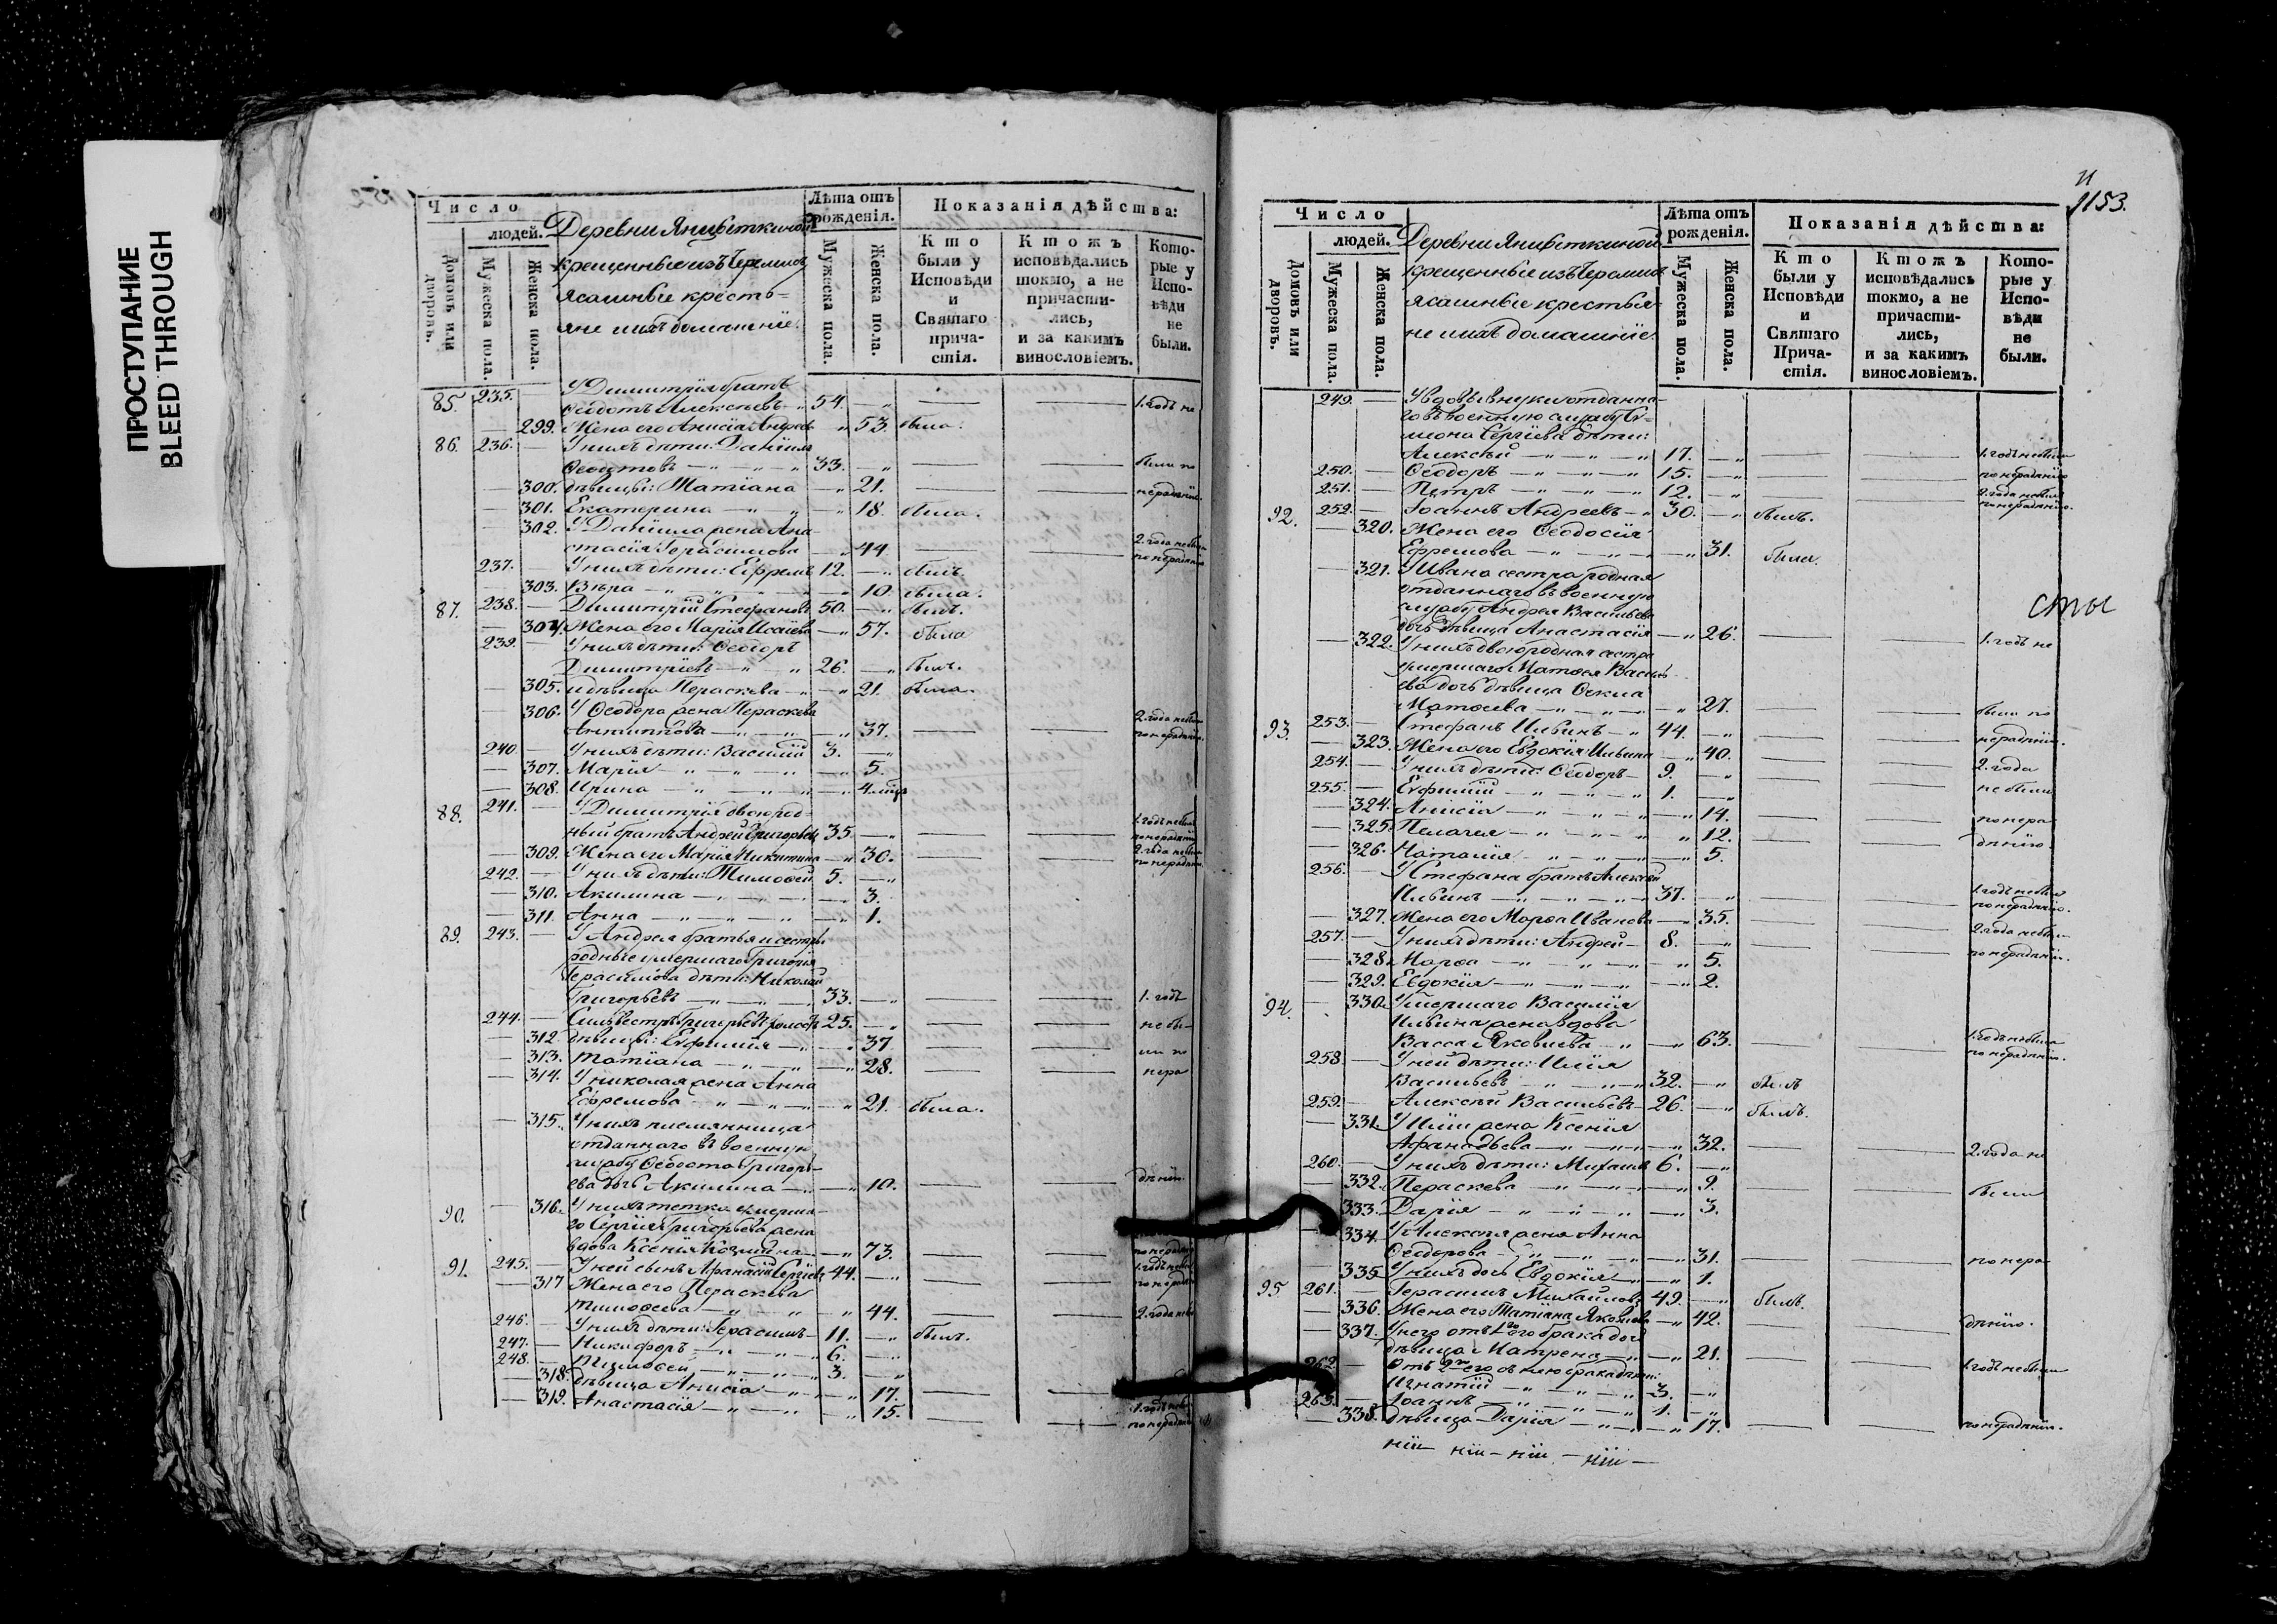 ПРОСТУПАНИЕ
BLEED THROUGH
Число
людей.
Домовъ или дворовъ.
Мужеска пола.
Женска пола.
Деревни Янцыткиной
крещенные изъ Черемисъ
ясашные кресть=
яне и ихъ домашніе.
Лѣта отъ рожденія.
Мужеска пола.
Женска пола.
Показанія дѣйства:
Кто были у Исповѣди и Святаго прича-стія.
Ктожъ исповѣдались токмо, а не причасти-лись, и за какимъ винословіемъ.
Кото-рые у Испо-вѣди не были.
85. 235. У Димитрія братъ
Ѳедотъ Алексѣевъ 54. 1. годъ не
299. Жена его Анисія Андреева 53. была.
86. 236. У нихъ дѣти: Даніилъ
Ѳедотовъ 33. были по
300. дѣвицы: Татіана 21. нерадѣнію.
301. Екатерина 18. была.
302. У Даніила жена Ана-
стасія Герасимова 44. 2. года не была
по нерадѣнію.
237. У нихъ дѣти: Ефремъ 12. былъ.
303. Вѣра 10. была.
87. 238. Димитрій Стефановъ 50. былъ.
304. Жена его Марія Исаіева 57. была
239. У нихъ дѣти: Ѳеодоръ
Димитріевъ 26. былъ.
305. и дѣвица Параскева 21. была.
306. У Ѳеодора жена Параскева
Антипова 37. 2. года не была
по нерадѣнію.
240. У нихъ дѣти: Василій 3.
307. Марія 5.
308. Ирина 4. мѣс
88. 241. У Димитрія двоюрод-
ный братъ Андрей Григорьевъ 35. 1. годъ не былъ
по нерадѣнію
309. Жена его Марія Никитина 30. 2. года не была
по нерадѣнію.
242. У нихъ дѣти: Тимоѳей 5.
310. Акилина 3.
311. Анна 1.
89. 243. У Андрея братья и сестры
родные умершаго Григорія
Герасимова дѣти: Николай
Григорьевъ 33. 1. годъ
244. Сильвестръ Григорьевъ холостъ 25. не бы-
312. дѣвицы: Евфимія 37. ли по
313. Татіана 28. нера
314. У Николая жена Анна
Ефремова 21. была.
315. У нихъ племянница
отданнаго въ военную
службу Ѳедота Григорь-
ева дочь Акилина 10. дѣнію.
90. 316. У нихъ тетка умерша-
го Сергія Григорьева жена
вдова Ксенія Козмина 73. по нерадѣнію
91. 245. У ней сынъ Афанасій Сергіевъ 44. 1. годъ не былъ
317. Жена его Параскева по нерадѣнію
Тимоѳеева 44. 2. года не была
246. У нихъ дѣти: Герасимъ 11. былъ.
247. Никифоръ 6.
248. Тимоѳей 3.
318. дѣвица Анисія 17.
319. Анастасія 15. 1. годъ не были
по нерадѣнію
1153.
Число
людей.
Домовъ или дворовъ.
Мужеска пола.
Женска пола.
Деревни Янцыткиной
крещенные изъ Черемисъ
ясашные крестья-
не и ихъ домашніе.
Лѣта отъ рожденія.
Мужеска пола.
Женска пола.
Показанія дѣйства:
Кто были у Исповѣди и Святаго Прича-стія.
Ктожъ исповѣдались токмо, а не причасти-лись, и за какимъ винословіемъ.
Кото-рые у Испо-вѣди не были.
249. У вдовы внуки отданна-
го въ военную службу Си-
меона Сергіева дѣти:
Алексѣй 17. 1. годъ не были
250. Ѳеодоръ 15. по нерадѣнію
251. Петръ 12. 2. года не былъ
по нерадѣнію.
92. 252. Іоаннъ Андреевъ 30. былъ.
320. Жена его Ѳеодосія
Ефремова 31. была.
321. У Ивана сестра родная
отданнаго въ военную
службу Андрея Васильева
дочь дѣвица Анастасія 26. 1. годъ не
322. У нихъ двоюродная сестра
умершаго Матѳея Василь-
ева дочь дѣвица Ѳекла
Матѳеева 27. были по
93. 253. Стефанъ Ильинъ 44. нерадѣнію.
323. Жена его Евдокія Ильина 40.
254. У нихъ дѣти: Ѳеодоръ 9. 2. года
255. Евфимій 1. не были
324. Анисія 14. по нера
325. Пелагея 12. дѣнію.
326. Наталія 5.
256. У Стефана братъ Алексѣй
Ильинъ 37. 1. годъ не былъ
по нерадѣнію.
327. Жена его Марѳа Иванова 35.
257. У нихъ дѣти: Андрей 8. 2. года не были
328. Марѳа 5. по нерадѣнію.
329. Евдокія 2.
94. 330. Умершаго Василія
Ильина жена вдова
Васса Яковлева 63. 1. годъ не была
по нерадѣнію.
258. У ней дѣти: Илія
Васильевъ 32. былъ
259. Алексѣй Васильевъ 26. былъ.
331. У Иліи жена Ксенія
Афанасьева 32. 2. года не
260. У нихъ дѣти: Михаилъ 6.
332. Параскева 9. были
333. Дарія 3.
334. У Алексѣя жена Анна
Ѳеодорова 31. по нера
335. У нихъ дочь Евдокія 1.
95 261. Герасимъ Михайловъ 49. былъ.
336. Жена его Татіана Яковлева 42. дѣнію.
337. У него отъ 1го его брака дочь
дѣвица Матрена 21.
262. Отъ 2го его съ нею брака дѣти: 1. годъ не были
Игнатій 3.
263. Іоаннъ 1.
338. дѣвица Дарія 17. по нерадѣнію.